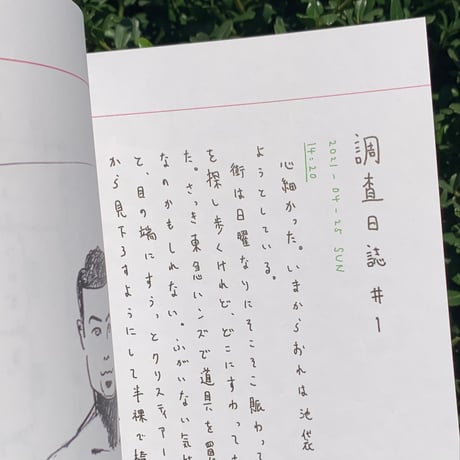 調査日誌 #1
2021-04-25 SUN
14:20
心細かった。いまからおれは池袋
ようとしている。
街は日曜なりにそこそこ賑わって
を探し歩くけれど、どこにすわっても
た。さっき東急ハンズで道具を買
なのかもしれない。ふがいない気持
と、目の端にすうっとクリスティアー
から見下ろすようにして半裸で椅